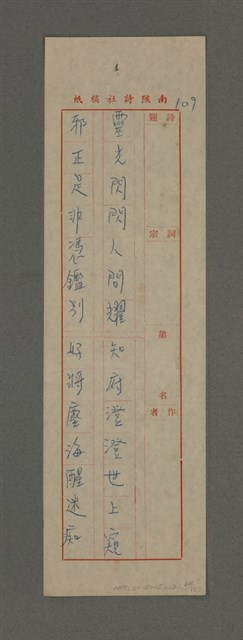 109
南陔詩社稿紙
詩題
詞宗
第 名
作者
靈光閃閃人間耀 知府澄澄世上窺
邪正是非憑鑑別 好將塵海醒迷痴